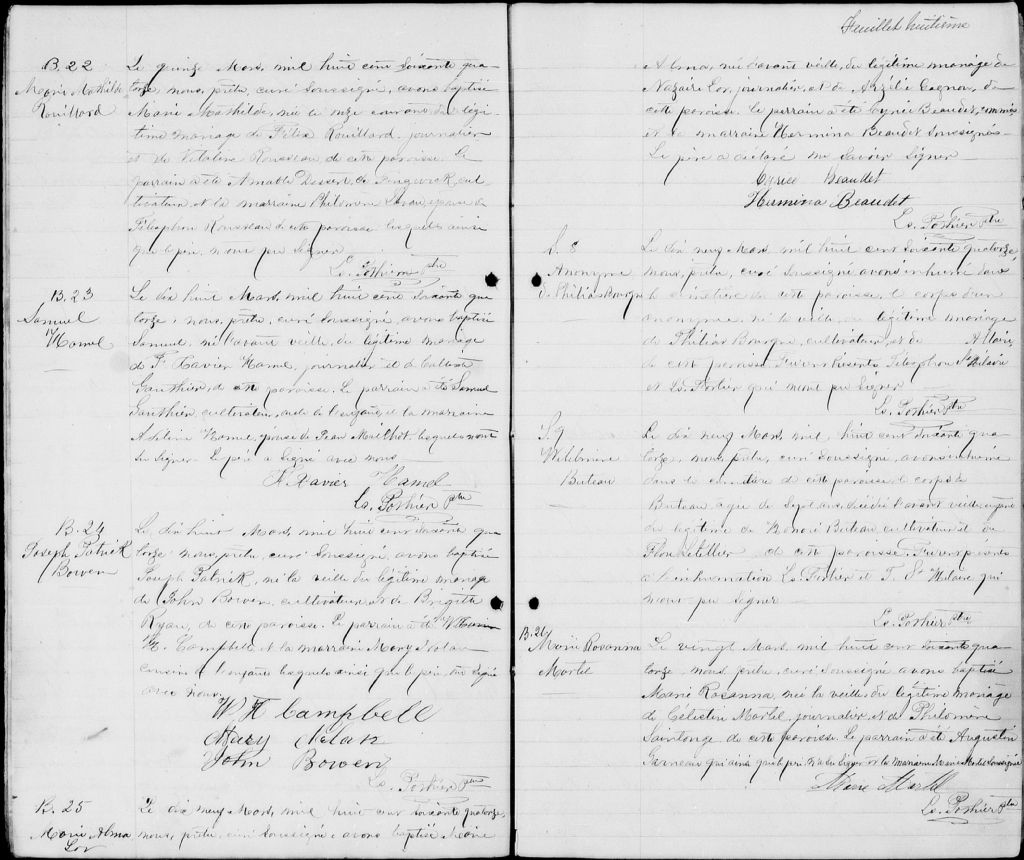 B. 22
Marie Mathilde
Rouillard
Le quinze Mars, mil huit cent soixante qua-
torze, nous, prêtre, curé soussigné, avons baptisé
Marie Mathilde, née le onze courant, du légi-
time mariage de Félix Rouillard, journalier
et de Vitaline Rousseau de cette paroisse. Le
parrain a été Amable Dessert, de Tingwick, cul-
tivateur, et la marraine Philomène épouse de
Télesphore Rousseau de cette paroisse lesquels ainsi
que le père, n'ont pu signer
Ls. Pothier Ptre
B. 23
Samuel
Hamel
Le dix huit Mars, mil huit cent soixante qua-
torze, nous, prêtre, curé soussigné, avons baptisé
Samuel, né l'avant veille, du légitime mariage
de F. Xavier Hamel, journalier et de
Gauthier, de cette paroisse. Le parrain a été Samuel
Gauthier, cultivateur, et la marraine
Adeline Hamel, épouse de Jean Mailhot, lesquels n'ont
su signer. Le père a signé avec nous
F. Xavier Hamel
Ls. Pothier Ptre
B. 24
Joseph Patrick
Bowen
Le dix huit Mars, mil huit cent soixante qua-
torze, nous, prêtre, curé soussigné, avons baptisé
Joseph Patrick, né la veille du légitime mariage
de John Bowen, cultivateur, et de Brigitte
Ryan, de cette paroisse. Le parrain a été William
H. Campbell et la marraine Mary Nolan
cousine de l'enfant lesquels ainsi que le père, ont signé
avec nous.
W H Campbell
Mary Nolan
John Bowen
Ls. Pothier Ptre
B. 25
Marie Alma
Lor
Le dix neuf Mars, mil huit cent soixante quatorze,
nous, prêtre, curé soussigné, avons baptisé Marie
Feuillet huitième
Alma, née l'avant veille, du légitime mariage de
Nazaire Lor, journalier, et de Arzélie Gagnon, de
cette paroisse. Le parrain a été Cyrice Beaudet, commis
et la marraine Hermina Beaudet soussignés
Le père a déclaré ne savoir signer
Cyrice Beaudet
Hermina Beaudet
Ls. Pothier Ptre
S. 8
Anonyme
de Philias Bourque
Le dix neuf Mars, mil huit cent soixante quatorze,
nous, prêtre, curé soussigné avons inhumé dans
le cimetière de cette paroisse, le corps d'un
anonyme, né la veille, du légitime mariage
de Philias Bourque, cultivateur, et de Allaire,
de cette paroisse. Furent présents, Télesphore St Hilaire
et Ls. Fortier qui n'ont pu signer
Ls. Pothier Ptre
S. 9
Buteau
Le dix neuf Mars, mil, huit cent soixante qua-
torze, nous, prêtre, curé soussigné, avons inhumé
dans le cimetière de cette paroisse, le corps de
Buteau agée de sept ans, décédée l'avant veille
du légitime de Honoré Buteau cultivateur et de
Letellier de cette paroisse. Furent présents
à l'inhumation Ls. Fortier et T. St Hilaire qui
n'ont pu signer
Ls. Pothier Ptre
B. 26
Marie Rosanna
Martel
Le vingt Mars, mil huit cent soixante qua-
torze, nous, prêtre, curé soussigné, avons baptisé
Marie Rosanna, née la veille, du légitime mariage
de Célestin Martel, journalier, et de Philomène
Saintonge de cette paroisse. Le parrain a été Augustin
Garneau qui ainsi que le père n'a su signer et la marraine Marie Martel soussignée
Marie Martel
Ls. Pothier Ptre